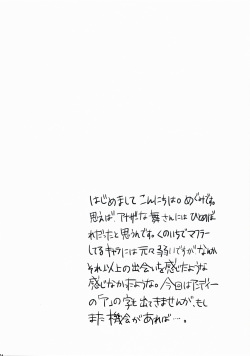 はじめまして こんにちは。めぐみです。
思えば、アナザーな舞さんには ひとめぼ
れだったと思うんです。くのいちでマフラー
してるキャラには元々弱いですがなんか
それ以上の出会いを感じたような
感じなかったような。今回はアンディー
の「ア」の字も出てきませんが、もし
また機会があれば…。